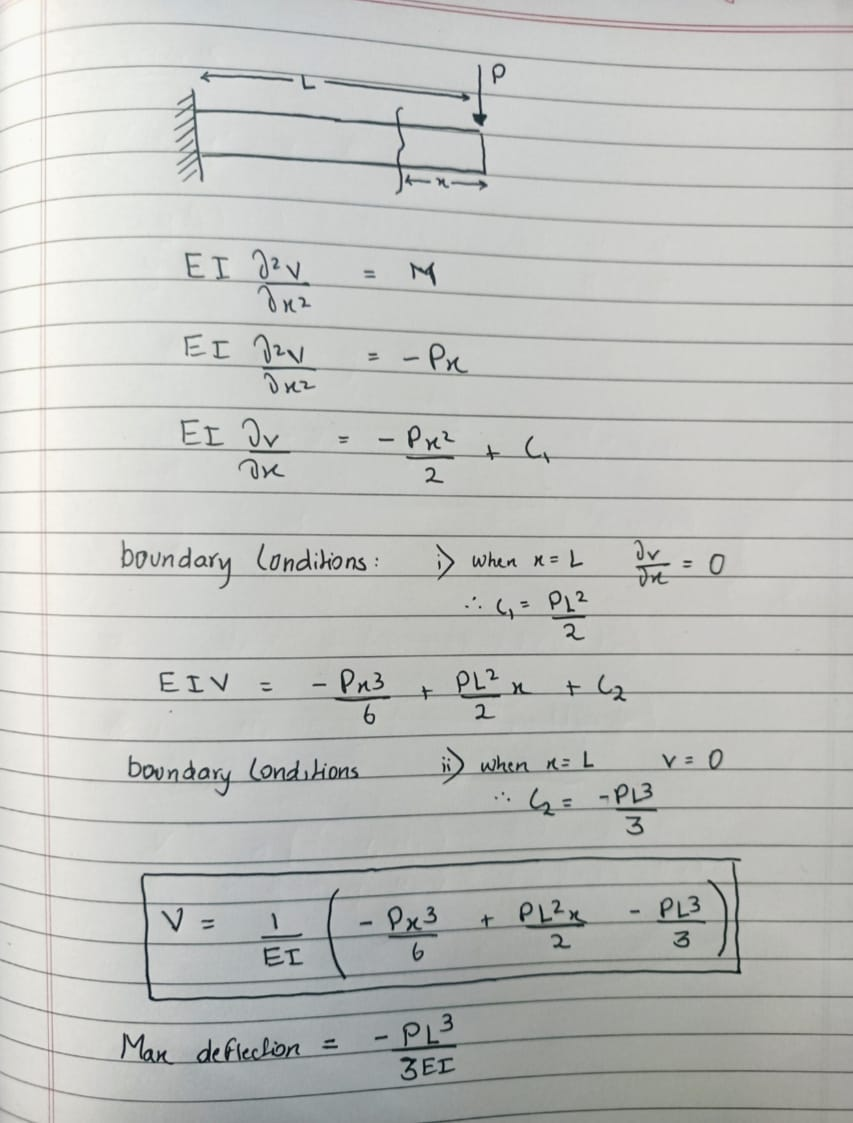 L
P
x
EI ∂²v/∂x² = M
EI ∂²v/∂x² = -Px
EI ∂v/∂x = -Px²/2 + C₁
boundary Conditions: i) when x = L ∂v/∂x = 0
∴ C₁ = PL²/2
EIV = -Px³/6 + PL²/2 x + C₂
boundary Conditions ii) when x = L v = 0
∴ C₂ = -PL³/3
V = 1/EI ( -Px³/6 + PL²x/2 - PL³/3 )
Max deflection = -PL³/3EI